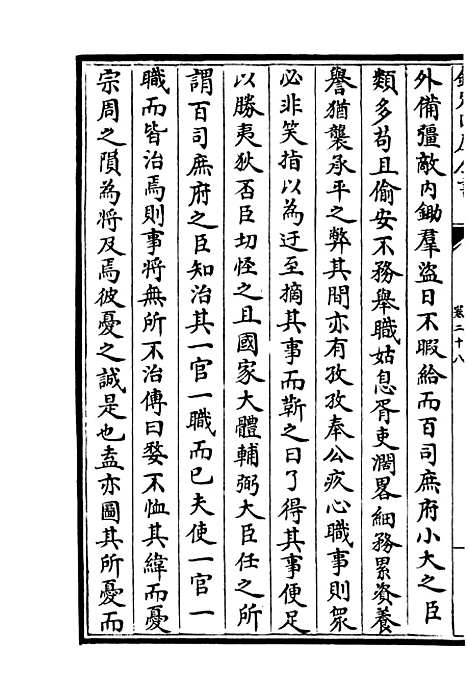 欽定四庫全書
卷二十八
外備彊敵内鋤羣盜日不暇給而百司庶府小大之臣
類多苟且偷安不務舉職姑息胥吏濶畧細務累資養
譽猶襲承平之弊其間亦有孜孜奉公疚心職事則衆
必非笑指以為迂至摘其事而靳之曰了得其事便足
以勝夷狄否臣切怪之且國家大體輔弼大臣任之所
謂百司庶府之臣知治其一官一職而已夫使一官一
職而皆治焉則事將無所不治傳曰嫠不恤其緯而憂
宗周之隕為將及焉彼憂之誠是也盍亦圖其所憂而